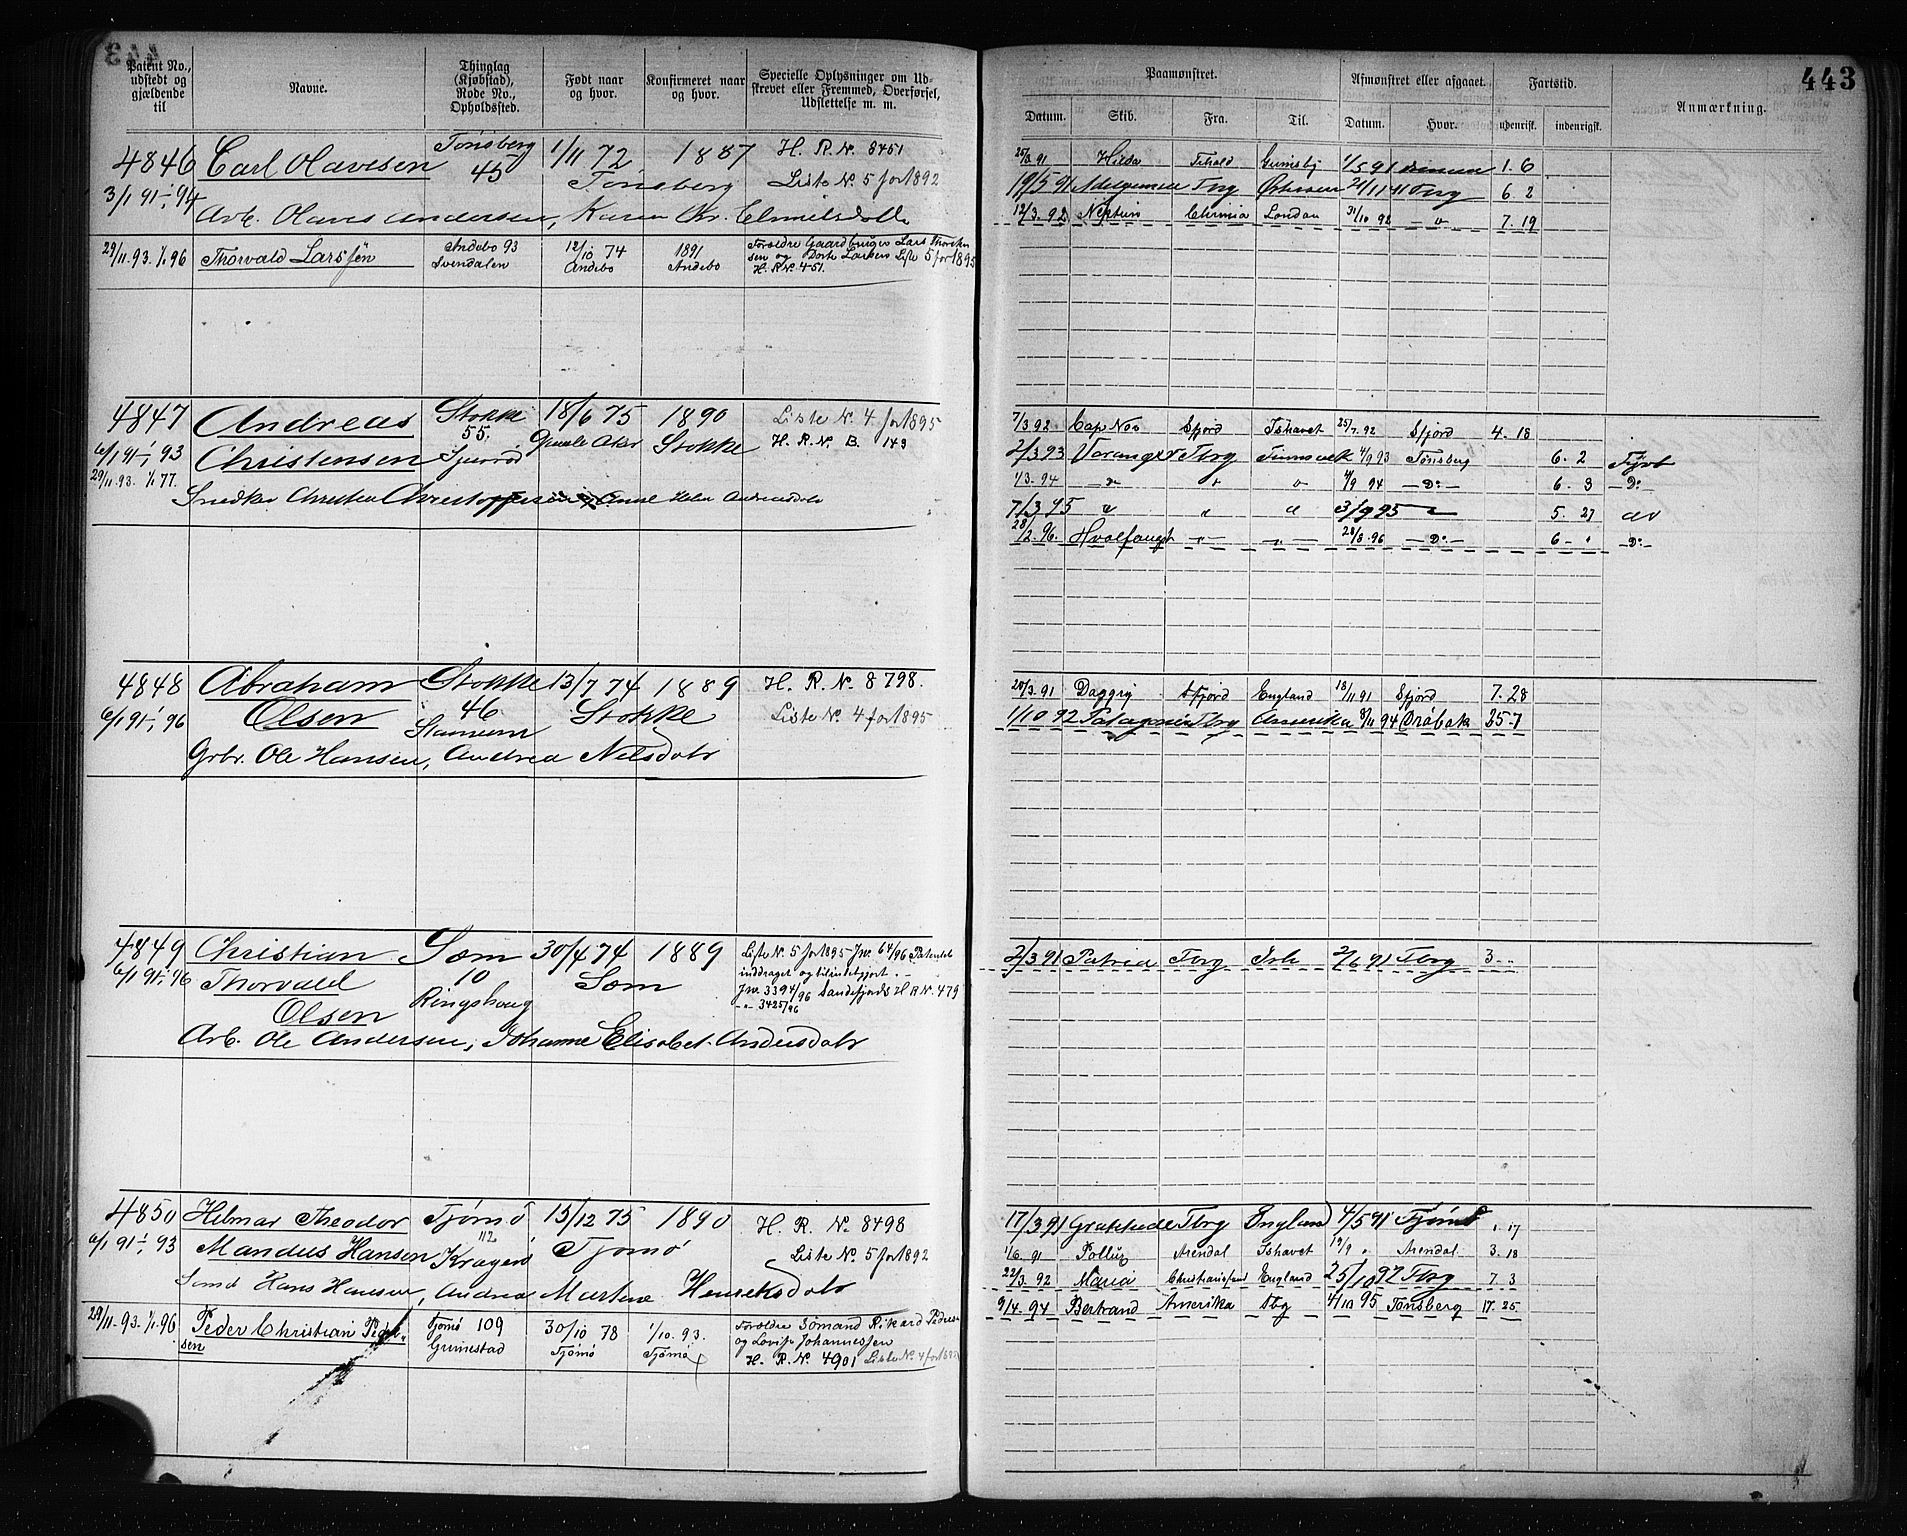 443
Patent No., udstedt og gjældende til
Navne.
Thinglag (Kjøbstad), Rode No., Opholdssted.
Født naar og hvor.
Konfirmeret naar og hvor.
Specielle Oplysninger om Udskrevet eller Fremmed, Overførsel, Udslettelse m. m.
4846 Carl Olavesen Tønsberg 1/11 72 1887 H. R. N. 8451
3/1 91-1/1 94 45 Tønsberg Liste N. 5 for 1892
Arb. Olaves Andersen, Karen Kr. Elmielsdatter
29/11.93. 1/1 96 Thorvald Larssen Andebo 93 12/10 74 1891 Forældre Gaardbruger Lars Thorkn
Svendalen Andebo Andebo sen og Dorte Larsen Liste 5 for 1895
H. R. N. 451.
4847 Andreas Stokke 18/6 75 1890 Liste N. 4 for 1895
6/1 91-1/1 93 Christensen 55. Aker Stokke H. R. N. B. 143
29/11.93. 1/1 77.
Snedker Christen Christoffersen, Anne Helne Andersdatr
4848 Abraham Stokke 13/7 74 1889 H. R. N. 8798.
6/1 91-1/1 96 Olsen 46 Stokke Liste N. 4 for 1895
Grbr. Ole Hansen, Andrea Nilsdatr
4849 Christian Sæm 30/4 74 1889 Liste N. 5 for 1895 Jnr. 64/96 Patentet
6/1 91-1/1 96 Thorvald 10 Sæm inddraget og tilintetgjort.
Olsen Ringshoug Jnr. 3394/96 Sandefjords H R N. 479
-"- 3425/96
Arb. Ole Andersen, Johanne Elisabet Andersdatr
4850 Hilmar Theodor Tjømø 15/12 75 1890 H. R. N. 8498
6/1 91-1/1 93 Mandus Hansen 112 Kragerø Tjømø Liste N. 5 for 1892
Sømd Hans Hansen, Andrea Martine Henriksdatr
29/11.93. 1/1.96 Peder Christian Peder- Tjømø 109 30/10 78 1/10.93. Forældre Sømand Rikard Peders-
sen Grimestad Tjømø Tjømø og Lovise Johannessen
H. R. N. 4901 Liste N. 4 for 1892
Paamønstret.
Afmønstret eller afgaaet.
Fartstid.
Anmærkning.
Datum. Skib. Fra. Til. Datum. Hvor. udenrisk. indenrigsk.
25/3 91 Hilda Grimsby 1/5 91 1. 6
19/5 91 Tbrg 21/11 91 Tbrg 6. 2
12/3. 92 Neptun London 31/10 92 — " 7. 19
7/3 92 Cap Nor Sfjord Ishavet 25/7. 92 Sfjord 4. 18
2/3 93 Varanger Tbrg Finmark 4/9 93 Tønsberg 6. 2
1/3. 94 —"— " " 4/9 94 —Do— 6. 3 —Do—
7/3 95 " " " 3/9 95 5. 27 do
28/2. 96. Hvalfangst —"— —"— 28/8. 96 —Do— 6 - " —Do—
20/3. 91 Daggry Sfjord England 18/11 91 Sfjord 7. 28
1/10 92 Patagonia Tbrg Amerika 8/11 94 Drøbak 25-7
2/3 91 Patria Tbrg Ish 2/6 91 Tbrg 3. "
17/3 91 Tbrg England 4/5 91 Tjømø 1. 17
1/6. 91 Pollux Arendal Ishavet 19/9 " Arendal 3. 18
22/3. 92 Maria Christiansand England 25/10 92 Tbrg 7. 3
9/4. 94 Bertrand Amerika Tbg 4/10 95 Tønsberg 17. 25